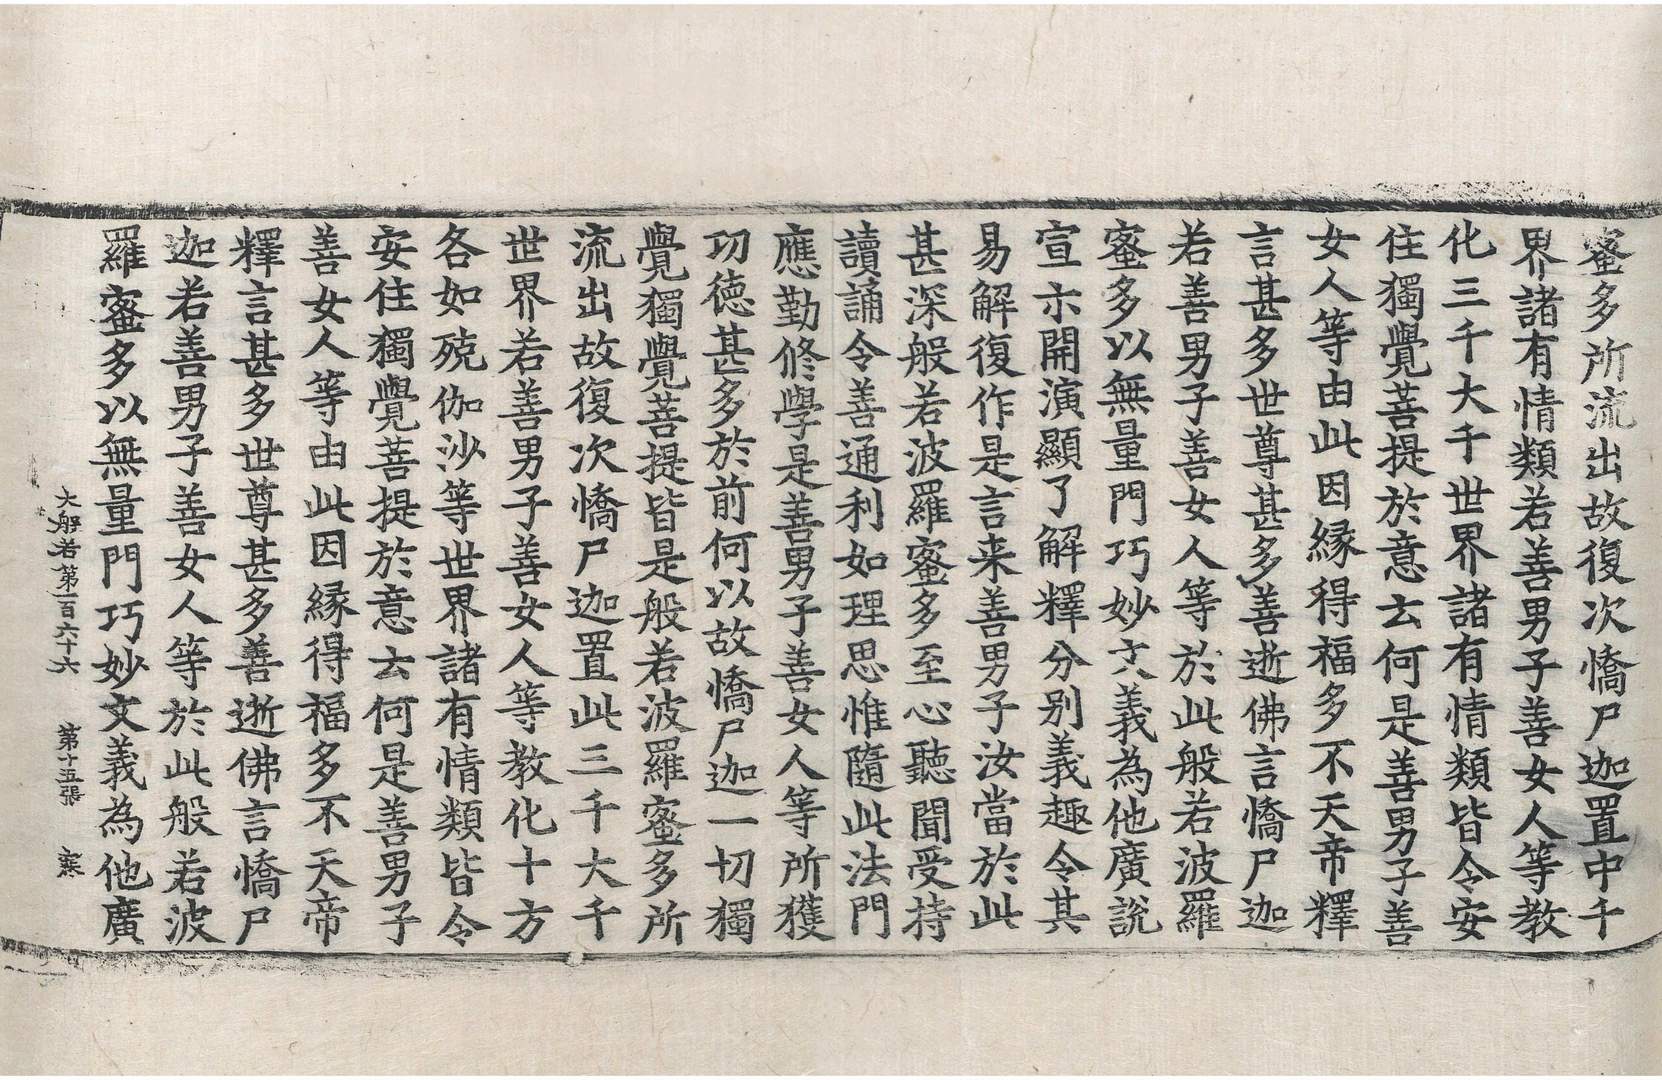 蜜多所流出故復次憍尸迦置中千
界諸有情類若善男子善女人等教
化三千大千世界諸有情類皆令安
住獨覺菩提於意云何是善男子善
女人等由此因縁得福多不天帝釋
言甚多世尊甚多善逝佛言憍尸迦
若善男子善女人等於此般若波羅
蜜多以無量門巧妙文義為他廣說
宣示開演顯了解釋分别義趣令其
易解復作是言来善男子汝當於此
甚深般若波羅蜜多至心聽聞受持
讀誦令善通利如理思惟隨此法門
應勤修學是善男子善女人等所獲
功徳甚多於前何以故憍尸迦一切獨
覺獨覺菩提皆是般若波羅蜜多所
流出故復次憍尸迦置此三千大千
世界若善男子善女人等教化十方
各如殑伽沙等世界諸有情類皆令
安住獨覺菩提於意云何是善男子
善女人等由此因縁得福多不天帝
釋言甚多世尊甚多善逝佛言憍尸
迦若善男子善女人等於此般若波
羅蜜多以無量門巧妙文義為他廣
大般若第一百六十六 第十五張